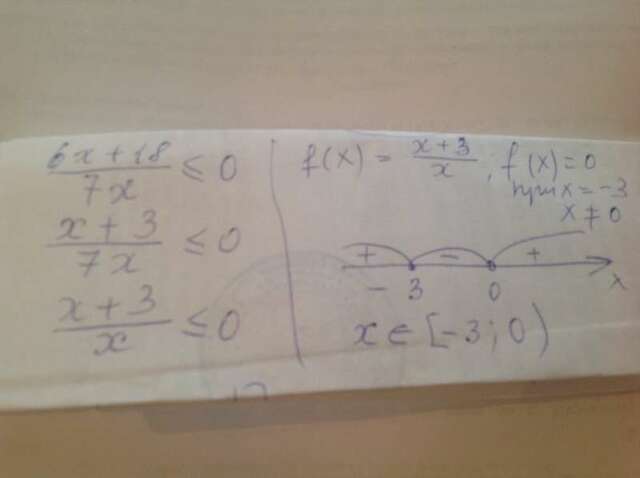 6x+18/7x ≤ 0
x+3/7x ≤ 0
x+3/x ≤ 0
f(x) = x+3/x ; f(x)=0
при x = -3
x ≠ 0
+ - +
-3 0 x
x ∈ [-3; 0)